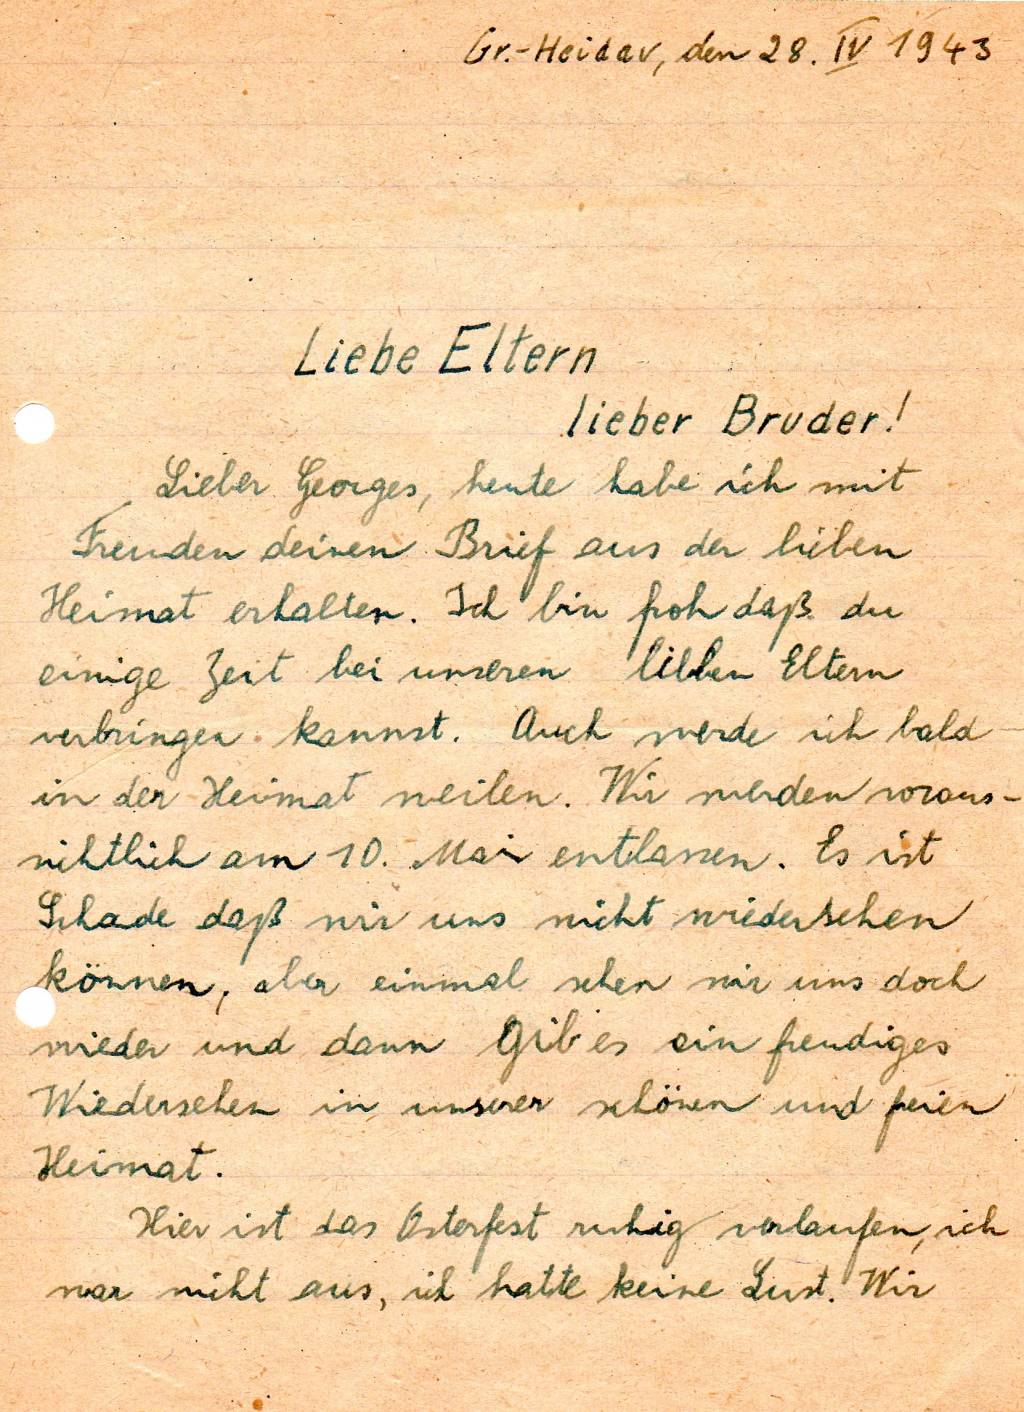 Gr.-Heidau, den 28. IV 1943
Liebe Eltern
lieber Bruder!
Lieber Georges, heute habe ich mit
Freuden deinen Brief aus der lieben
Heimat erhalten. Ich bin froh daß du
einige Zeit bei unseren lieben Eltern
verbringen kannst. Auch werde ich bald
in der Heimat weilen. Wir werden voraus-
sichtlich am 10. Mai entlassen. Es ist
Schade daß wir uns nicht wiedersehen
können, aber einmal sehen wir uns doch
wieder und dann Gib es ein freudiges
Wiedersehen in unserer schönen und freien
Heimat.
Hier ist das Osterfest ruhig verlaufen, ich
war nicht aus, ich hatte keine Lust. Wir